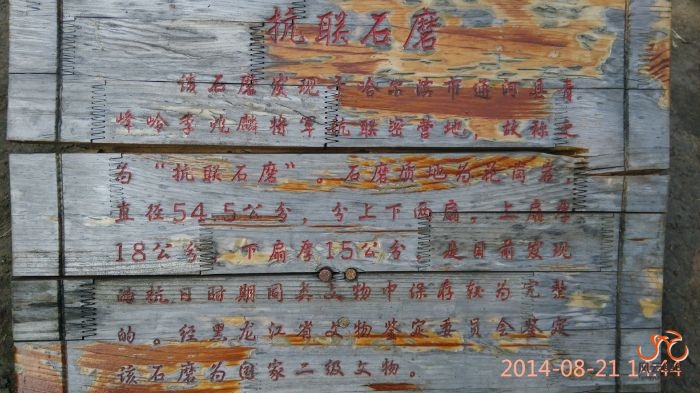 抗联石磨
该石磨发现于哈尔滨市通河县青
峰岭李兆麟将军抗联密营地，故称之
为“抗联石磨”。石磨质地为花岗岩，
直径54.5公分，分上下两扇，上扇厚
18公分，下扇厚15公分，是目前发现
的抗日时期同类文物中保存较为完整
的。经黑龙江省文物鉴定委员会鉴定
该石磨为国家二级文物。
2014-08-21 11:44